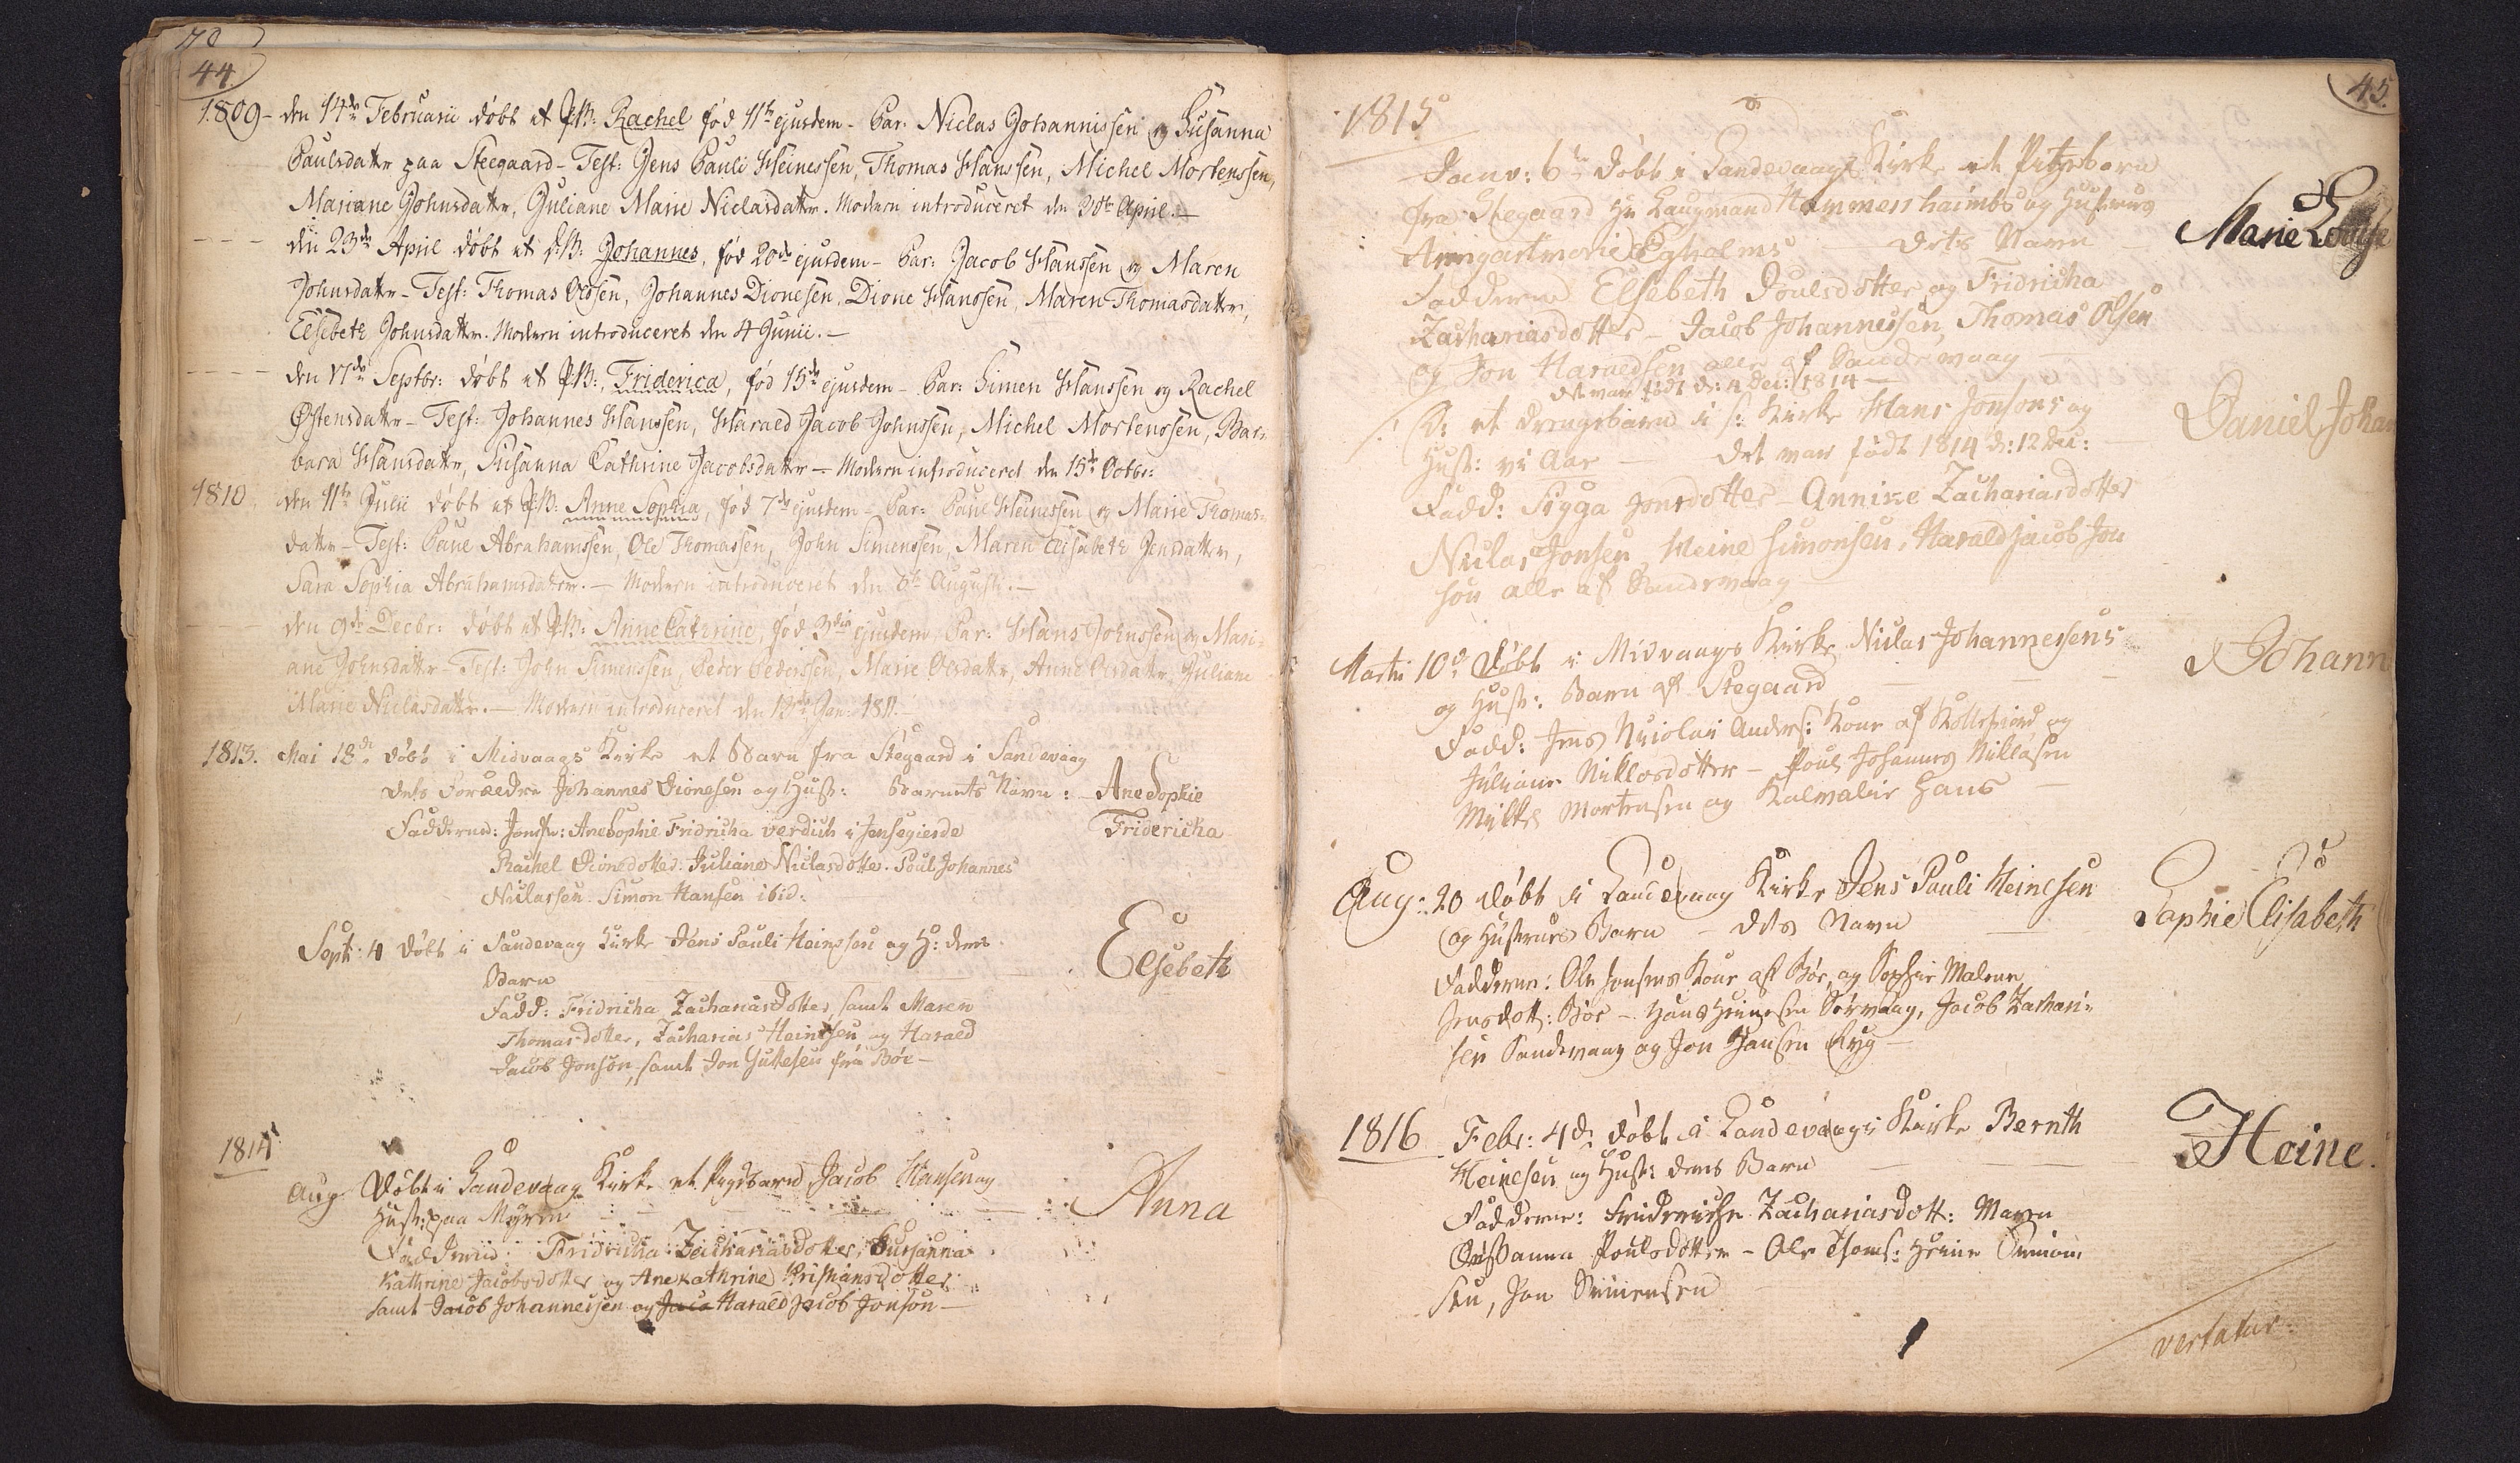 44
1809 - den 14de Februarii døbt et P.B: Rachel fød 11te ejusdem - Par: Niclas Johannissen og Susanna
Paulsdattr paa Steegaard - Test: Jens Pauli Heinessen, Thomas Hanssen, Michel Mortenssen,
Mariane Johnsdattr, Juliane Marie Niclasdattr. Modern introduceret den 30te April. -
- - - den 23de April døbt et d.B: Johannes, fød 20de ejusdem - Par: Jacob Hanssen og Maren
Johnsdattr - Test: Thomas Olssen, Johannes Dionesen, Dione Hanssen, Maren Thomasdattr,
Elsebeth Johnsdattr. Modern introduceret den 4 Junii. -
- - - den 17de Septbr: døbt et P.B:, Friderica, fød 15de ejusdem - Par: Simen Hanssen og Rachel
Østensdattr - Test: Johannes Hanssen, Harald Jacob Johnssen, Michel Mortenssen, Bar-
bara Hansdattr, Susanna Cathrine Jacobsdattr - Modern introduceret den 15de Octbr:
1810 den 11te Julii døbt et P.B: Anne Sophia, fød 7de ejusdem - Par: Paul Heinessen og Marie Thomas-
dattr - Test: Paul Abrahamssen, Ole Thomassen, John Simenssen, Maren Elisabeth Jensdattr,
Sara Sophia Abrahamsdattr. - Modern introduceret den 5te Augusti. -
den 9de Decbr: døbt et P.B: Anne Cathrine, fød 3die ejusdem, Par: Hans Johnssen og Mari-
ane Johnsdattr - Test: John Simenssen, Peder Pederssen, Marie Olsdattr, Anne Olsdattr, Juliane
Marie Niclasdattr. - Modern introduceret den 13de Jan: 1811
1813. Mai 18de døbt i Midvaags Kirke et Barn fra Stegaard i Sandevaag
dets Forældre Johannes Dionesen og Hust: Barnets Navn: - Ane Sophie
Fridericha
Fadderne: Jomfr: Ane Sophie Fridricha verdich i Jensegierde
Rachel Dionesdotter. Juliane Niclasdotter. Poul Johannes
Niclassen. Simon Hansen ibid:
Septr: 4 døbt i Sandevaag Kirke Jens Pauli Heinesen og H: deres
Barn - Elsebeth
Fadd: Fridricha Zachariasdotter, samt Maren
Thomasdotter, Zacharias Heinesen og Harald
Jacob Jonsøn, samt Jon Guttesen fra Bøe -
1814
Aug: Døbt i Sandevaag Kirke et Pigebarn Jacob Hansen og
Hust: paa Myren - Anna
Fadderne: Fridricha Zachariasdotter, Sussanna
Kathrine Jacobsdotter og Ane Kathrine Kristiansdotter
samt Jacob Johannessen og Jaco Harald Jacob Jonsøn -
45.
1815
Janv: 6te døbt i Sandevaags Kirke et Pigebarn
fra Stegaard Hr Laugmand Hammershaimbs og Hustrues
Armgartmarie Egholms - dets Navn - Marie Louise
Fadderne Elsebeth Poulsdotter og Fridricha
Zachariasdotter - Jacob Johannessen, Thomas Olsen
og Jon Haraldsen alle af Sandevaag
det var født d: 4 Dec: 1814 -
D: et drengebarn i s: Kirke Hans Jonsøns og
Hust: vi Aar - Det var født 1814 d: 12 Dec: - Daniel Johan
Fadd: Sigga Jonsdotter - Annike Zachariasdotter
Niclas Jonsen, Heine Simonsen, Harald Jacob Jon
søn alle af Sandevaag
Martii 10de døbt i Midvaags Kirke Niclas Johannessens
og Hust: Barn af Stegaard - Johann
Fadd: Jens Nicolai Anders: Kone af Kollefiord og
Juliane Niklasdotter - Poul Johannes Niklasen
Mikkel Mortensen og Kalvalie Hans -
Aug: 20 døbt i Sandevaag Kirke Jens Pauli Heinesen
og Hustrues Barn - dets Navn - Sophie Elisabeth
Fadderne: Ole Jonsens Kone af Bøe, og Sophie Malene
Jensdott: Bøe - Hans Heinesen Sørvaag, Jacob Zachari-
sen Sandevaag og Jon Hansen Ryg -
1816 Febr: 4de døbt i Sandevaags Kirke Bernth
Heinesen og Hust: deres Barn - Heine.
Fadderne: Friderikke Zachariasdott: Maren
Sussanna Poulsdotter - Ole Thoms: Heine Simon
sen, Jon Simensen
vertatur: